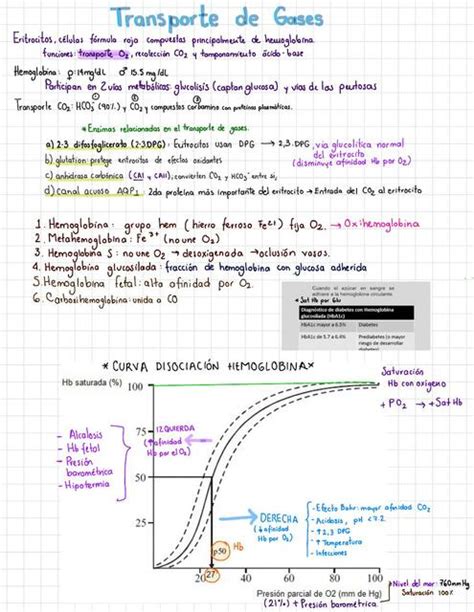 Transporte de Gases
Eritrocitos, células fórmula roja compuestas principalmente de hemoglobina
funciones: transporte O₂, recolección CO₂ y tamponamiento ácido-base
Hemoglobina: ♀ 14mg/dL ♂ 15.5 mg/dL
Participan en 2 vías metabólicas: glucólisis (captan glucosa) y vías de las pentosas
Transporte CO₂: HCO₃⁻ (90%) y CO₂ y compuestos carbamino con proteínas plasmáticas.
* Enzimas relacionadas en el transporte de gases.
a) 2-3 difosfoglicerato (2-3 DPG): Eritrocitos usan DPG → 2,3 DPG, via glucolítica normal
del eritrocito
(disminuye afinidad Hb por O₂)
b) glutation: protege eritrocitos de efectos oxidantes
c) anhidrasa carbónica (CAI y CAII); convierten CO₂ y HCO₃⁻ entre sí,
d) canal acuoso AQP1: 2da proteína más importante del eritrocito → Entrada del CO₂ al eritrocito
1. Hemoglobina: grupo hem (hierro ferroso Fe²⁺) fija O₂. → Oxihemoglobina
2. Metahemoglobina: Fe³⁺ (no une O₂)
3. Hemoglobina S: no une O₂ → desoxigenada → oclusión vasos.
4. Hemoglobina glucosilada: fracción de hemoglobina con glucosa adherida
5. Hemoglobina fetal: alta afinidad por O₂.
6. Carboxihemoglobina: unida a CO
Cuando el azúcar en sangre se
adhiere a la hemoglobina circulante.
Diagnóstico de diabetes con Hemoglobina
glucosilada (HbA1c)
HbA1c mayor a 6.5% Diabetes
HbA1c de 5.7 a 6.4% Prediabetes (o mayor
riesgo de desarrollar
diabetes)
* CURVA DISOCIACIÓN HEMOGLOBINA *
Saturación
Hb con oxígeno
+ PO₂ → + Sat Hb
Hb saturada (%)
100
75
50
25
IZQUIERDA
(↑ afinidad
Hb por el O₂)
- Alcalosis
- Hb fetal
- Presión
barométrica
- Hipotermia
DERECHA
(↓ afinidad
Hb por O₂)
- Efecto Bohr: mayor afinidad CO₂
- Acidosis, pH <7.2
- ↑ 2,3 DPG
- ↑ Temperatura
- Infecciones
p50 Hb
20 27 40 60 80 100
Presión parcial de O2 (mm de Hg)
(21%) + Presión barométrica.
Nivel del mar: 760mmHg
Saturación 100%